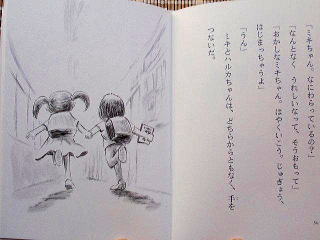 「ミキちゃん、なにわらっているの？」
「なんとなく、うれしいなって、そうおもって」
「おかしなミキちゃん。はやくいこう。じゅぎょう、
はじまっちゃうよ」
「うん」
ミキとハルカちゃんは、どちらからともなく、手を
つないだ。